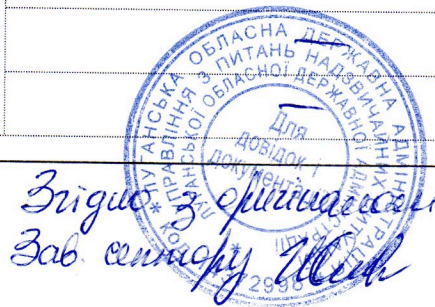 ЛУГАНСЬКА ОБЛАСНА ДЕРЖАВНА АДМІНІСТРАЦІЯ
УПРАВЛІННЯ З ПИТАНЬ НАДЗВИЧАЙНИХ
ЛУГАНСЬКОЇ ОБЛАСНОЇ ДЕРЖАВНОЇ АДМІНІСТРАЦІЇ
Для
довідок і
документів
Згідно з оригіналом
Зав. сектору